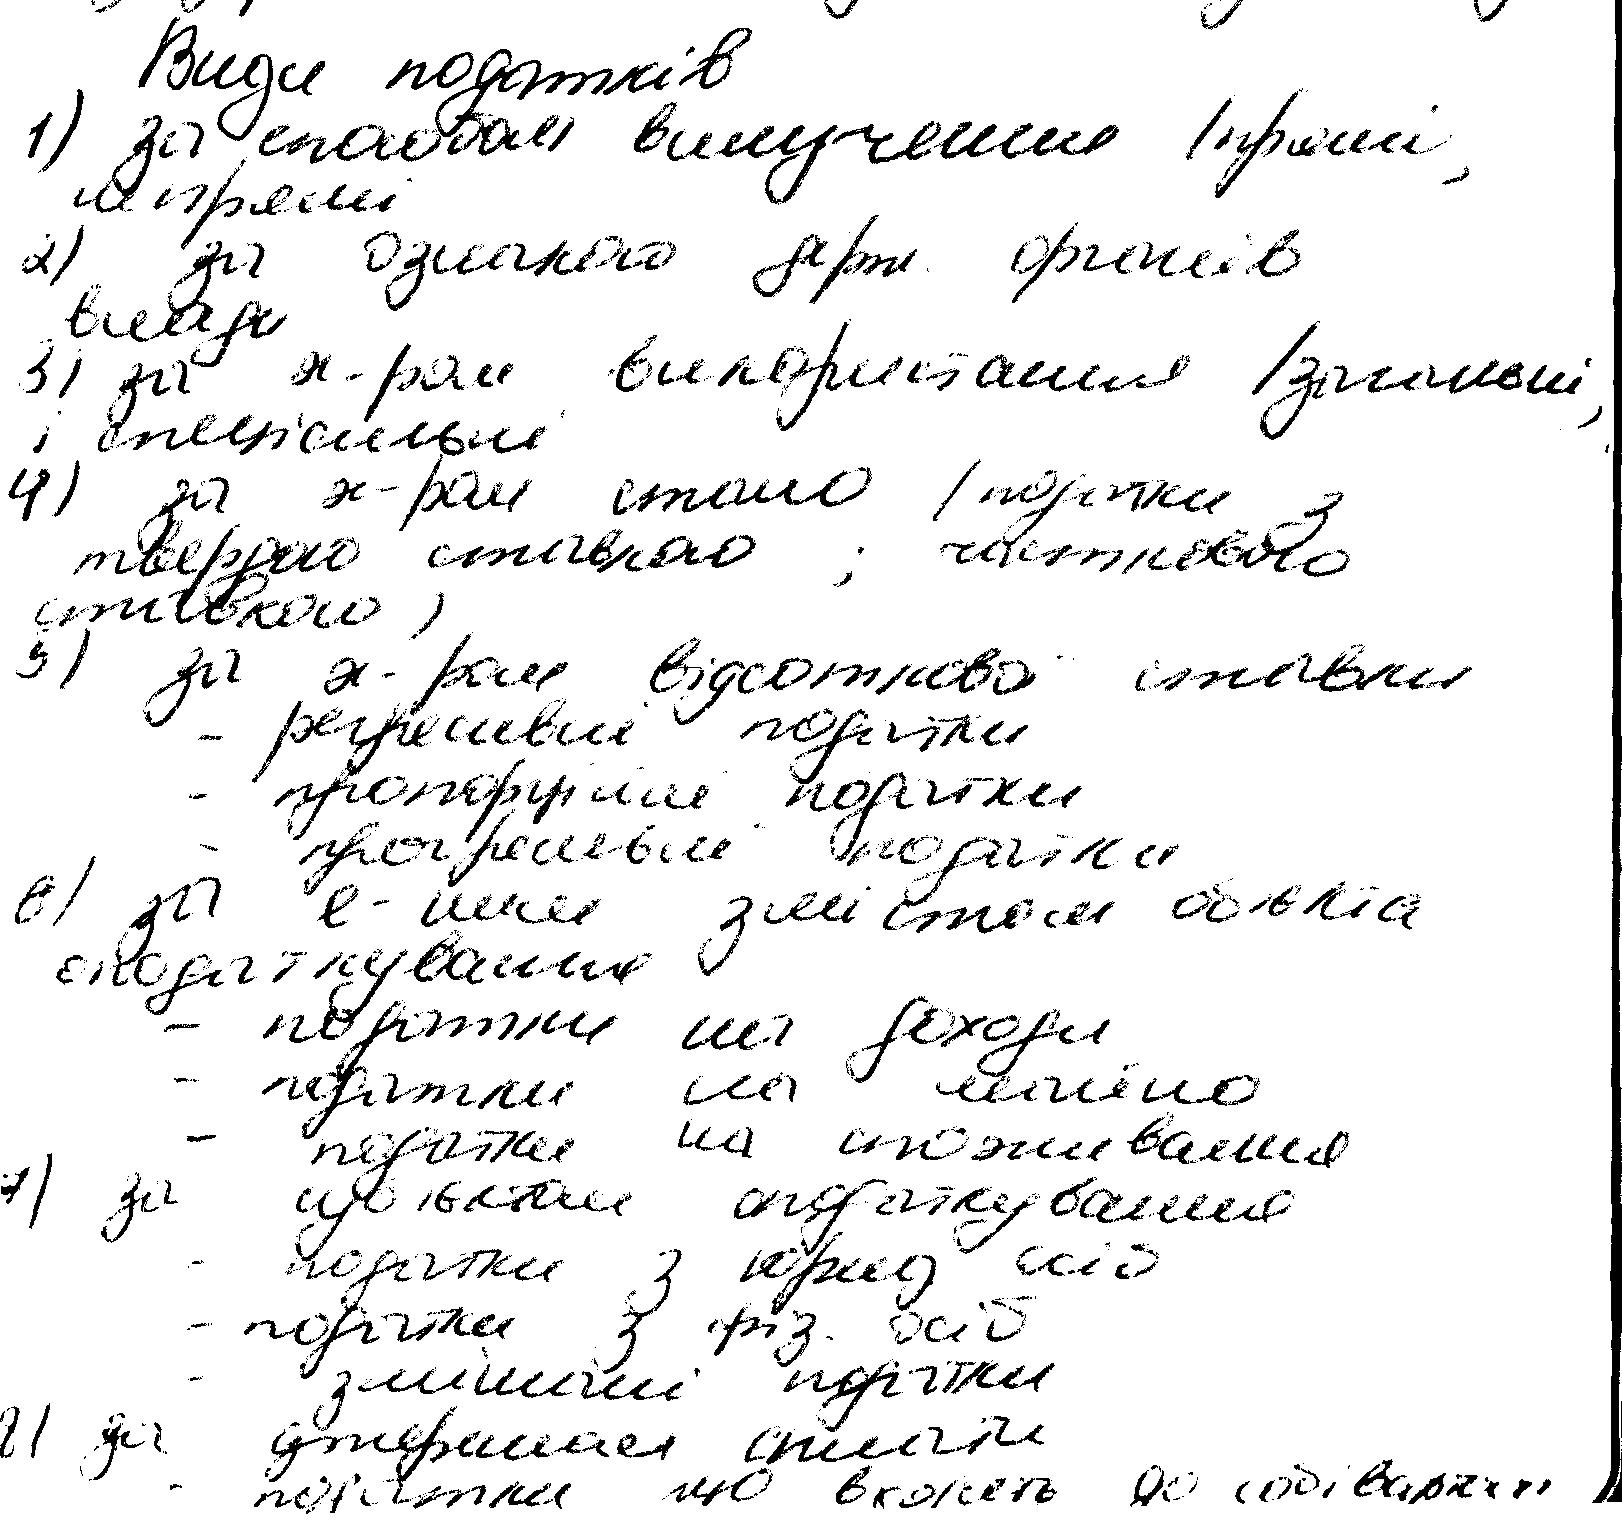 Види податків
1) за способом вилучення (прямі,
непрямі
2) за ознакою держ. органів
влади
3) за х-ром використання (загальні,
і спеціальні
4) за х-ром стало (податки з
твердою ставкою ; частковою
ставкою)
5) за х-ром відсоткової ставки
- регресивні податки
- пропорційні податки
- прогресивні податки
6) за е-ним змістом об'єкта
оподаткування
- податки на доходи
- податки на майно
- податки на споживання
7) за суб'єктом оподаткування
- податки з юрид осіб
- податки з фіз. осіб
- змішані податки
8) за джерелами сплати
- податки що входять до собівартості